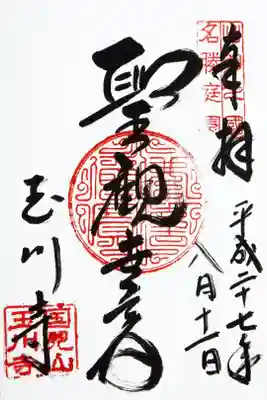 奉拝
平成二十七年
八月十一日
聖観世音
玉川寺
名勝庭園
国見山
玉川寺